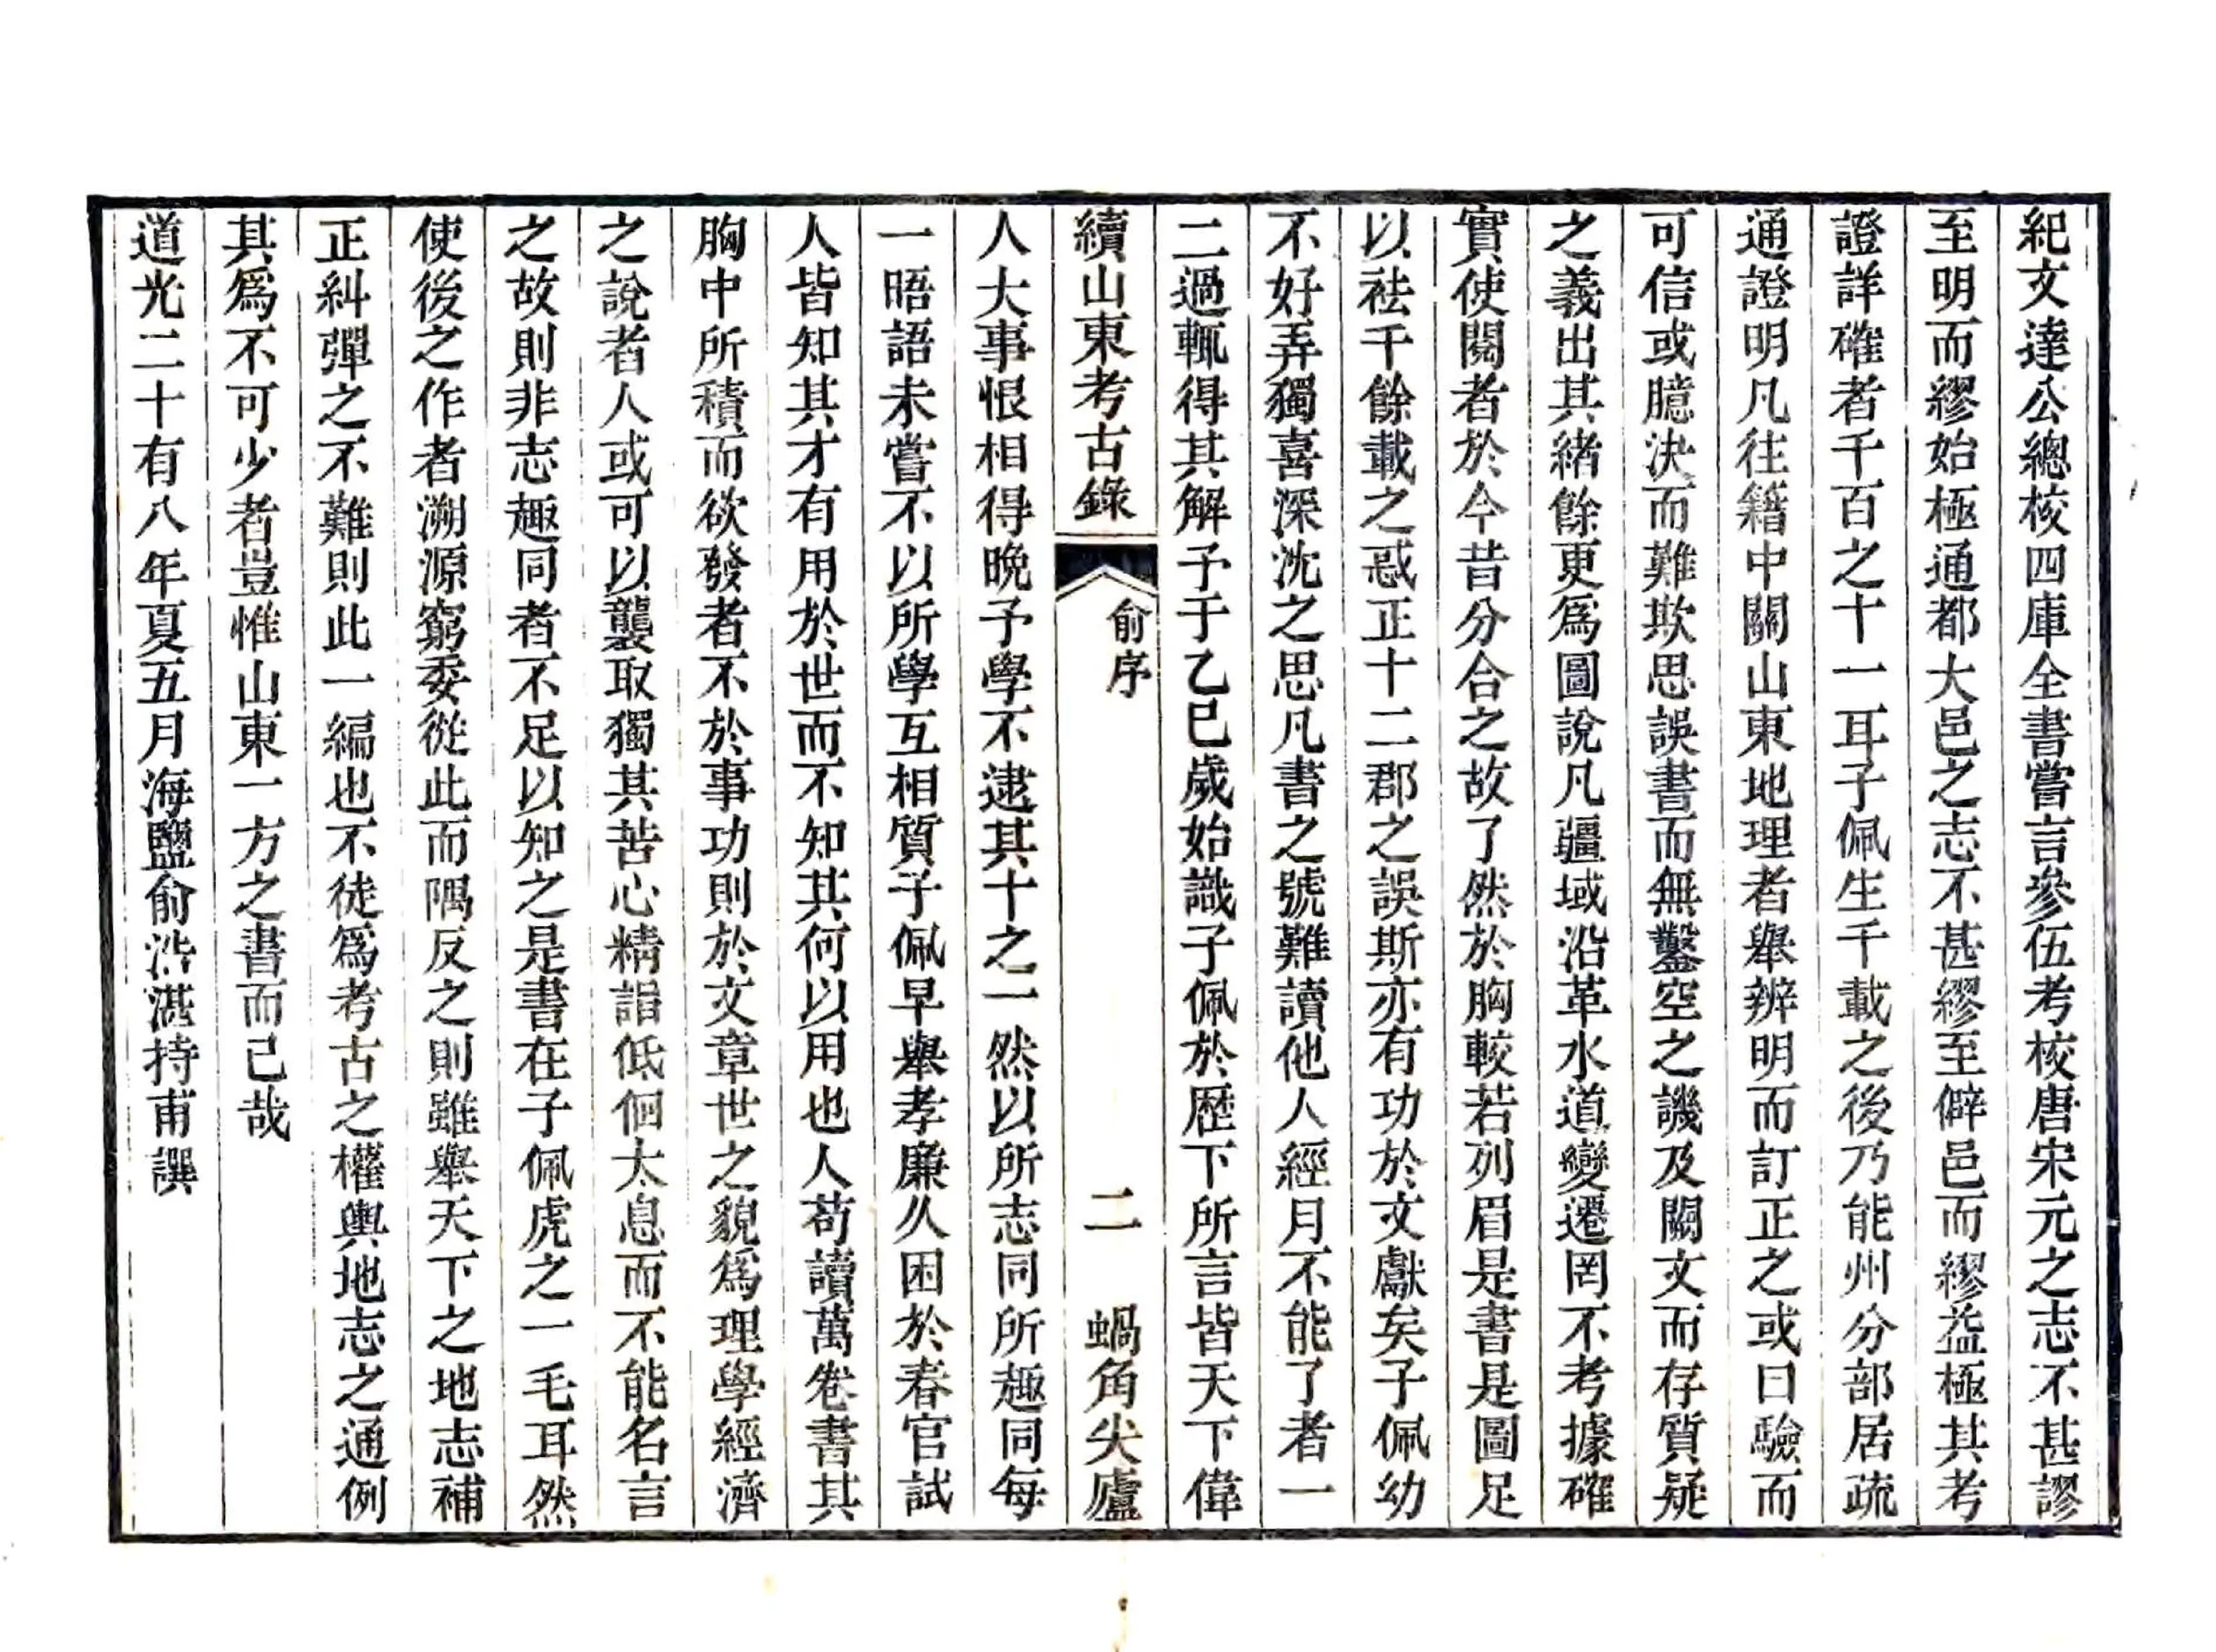 紀文達公總核四庫全書嘗言參伍考核唐宋元之志不甚謬
至明而繆始極通都大邑之志不甚繆至僻邑而繆益極其考
證詳確者千百之十一耳子佩生千載之後乃能州分部居疏
通證明凡往籍中關山東地理者舉辨明而訂正之或曰驗而
可信或臆決而難欺思誤書而無鑿空之譏及闕文而存質疑
之義出其緒餘更爲圖說凡疆域沿革水道變遷罔不考據確
實使閱者於今昔分合之故了然於胸較若列眉是書是圖足
以祛千餘載之惑正十二郡之誤斯亦有功於文獻矣子佩幼
不好弄獨喜深沈之思凡書之號難讀他人經月不能了者一
二過輒得其解予于乙巳歲始識子佩於歷下所言皆天下偉
續山東考古錄
俞序
二
蝸角尖廬
人大事恨相得晚予學不逮其十之一然以所志同所趣同每
一晤語未嘗不以所學互相質子佩早舉孝廉久困於春官試
人皆知其才有用於世而不知其何以用也人苟讀萬卷書其
胸中所積而欲發者不於事功則於文章世之貌爲理學經濟
之說者人或可以襲取獨其苦心精詣低佪太息而不能名言
之故則非志趣同者不足以知之是書在子佩虎之一毛耳然
使後之作者溯源窮委從此而隅反之則雖舉天下之地志補
正糾彈之不難則此一編也不徒爲考古之權輿地志之通例
其爲不可少者豈惟山東一方之書而已哉
道光二十有八年夏五月海鹽俞浩湛持甫譔